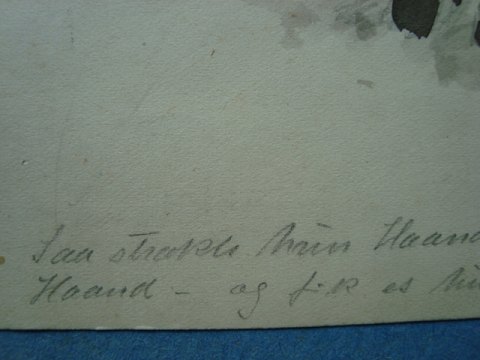 Saa strakte hun Haand
Haand – og fik es